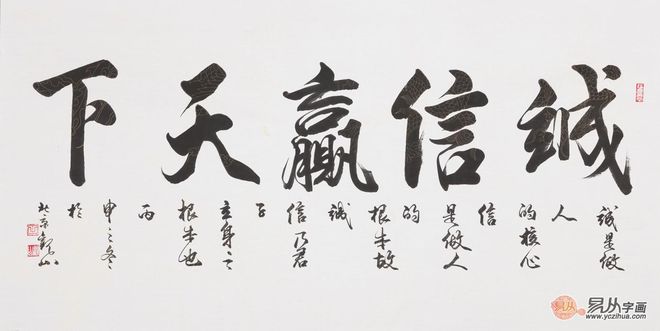 诚信赢天下
诚是做
人
的核心
信
是做人
的
根本故
诚
信乃君
子
立身之
根本也
丙
申之冬
於
易从字画
www.yczihua.com